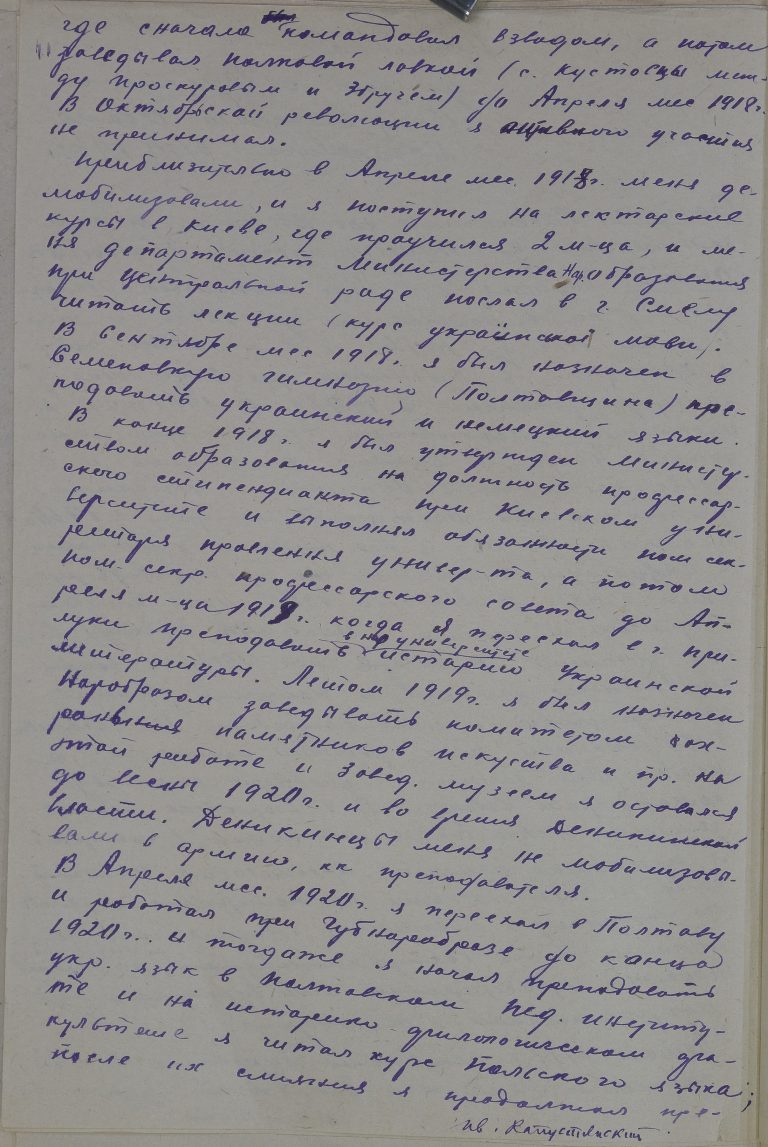 где сначала командовал взводом, а потом
заведывал полковой лавкой (с. Кустовцы меж-
ду Проскуровым и Збручем) до Апреля мес 1918г.
В Октябрьской революции я активного участия
не принимал.
Приблизительно в Апреле мес. 1918г. меня де-
мобилизовали, и я поступил на лекторские
курсы в Киеве, где проучился 2 м-ца, и ме-
ня департамент Министерства Нар. образования
при центральной раде послал в г. Смелу
читать лекции (курс української мови).
В Сентябре мес 1918г. я был назначен в
Семеновскую гимназию (Полтавщина) пре-
подавать украинский и немецкий языки.
В конце 1918г. я был утвержден министер-
ством образования на должность профессор-
ского стипендианта при Киевском уни-
верситете и выполнял обязанности пом сек-
ретаря правления универ-та, а потом
пом. секр. профессорского совета до Ап-
реля м-ца 1919г. когда я переехал в г. При-
луки преподавать в нар университете историю украинской
литературы. Летом 1919г. я был назначен
Наробразом заведывать комитетом ох-
ранения памятников искуства и пр. На
этой работе и завед. музеем я оставался
до весны 1920г. и во время Деникинской
власти. Деникинцы меня не мобилизовы-
вали в армию, кк преподавателя.
В Апреле мес. 1920г. я переехал в Полтаву
и работал при Губнаробразе до конца
1920г. и тогдаже я начал преподавать
укр. язык в Полтавском пед. институ-
те и на историко-филологическом фа-
культете я читал курс польского языка;
после их слияния я продолжал пре-
Ив. Капустянский